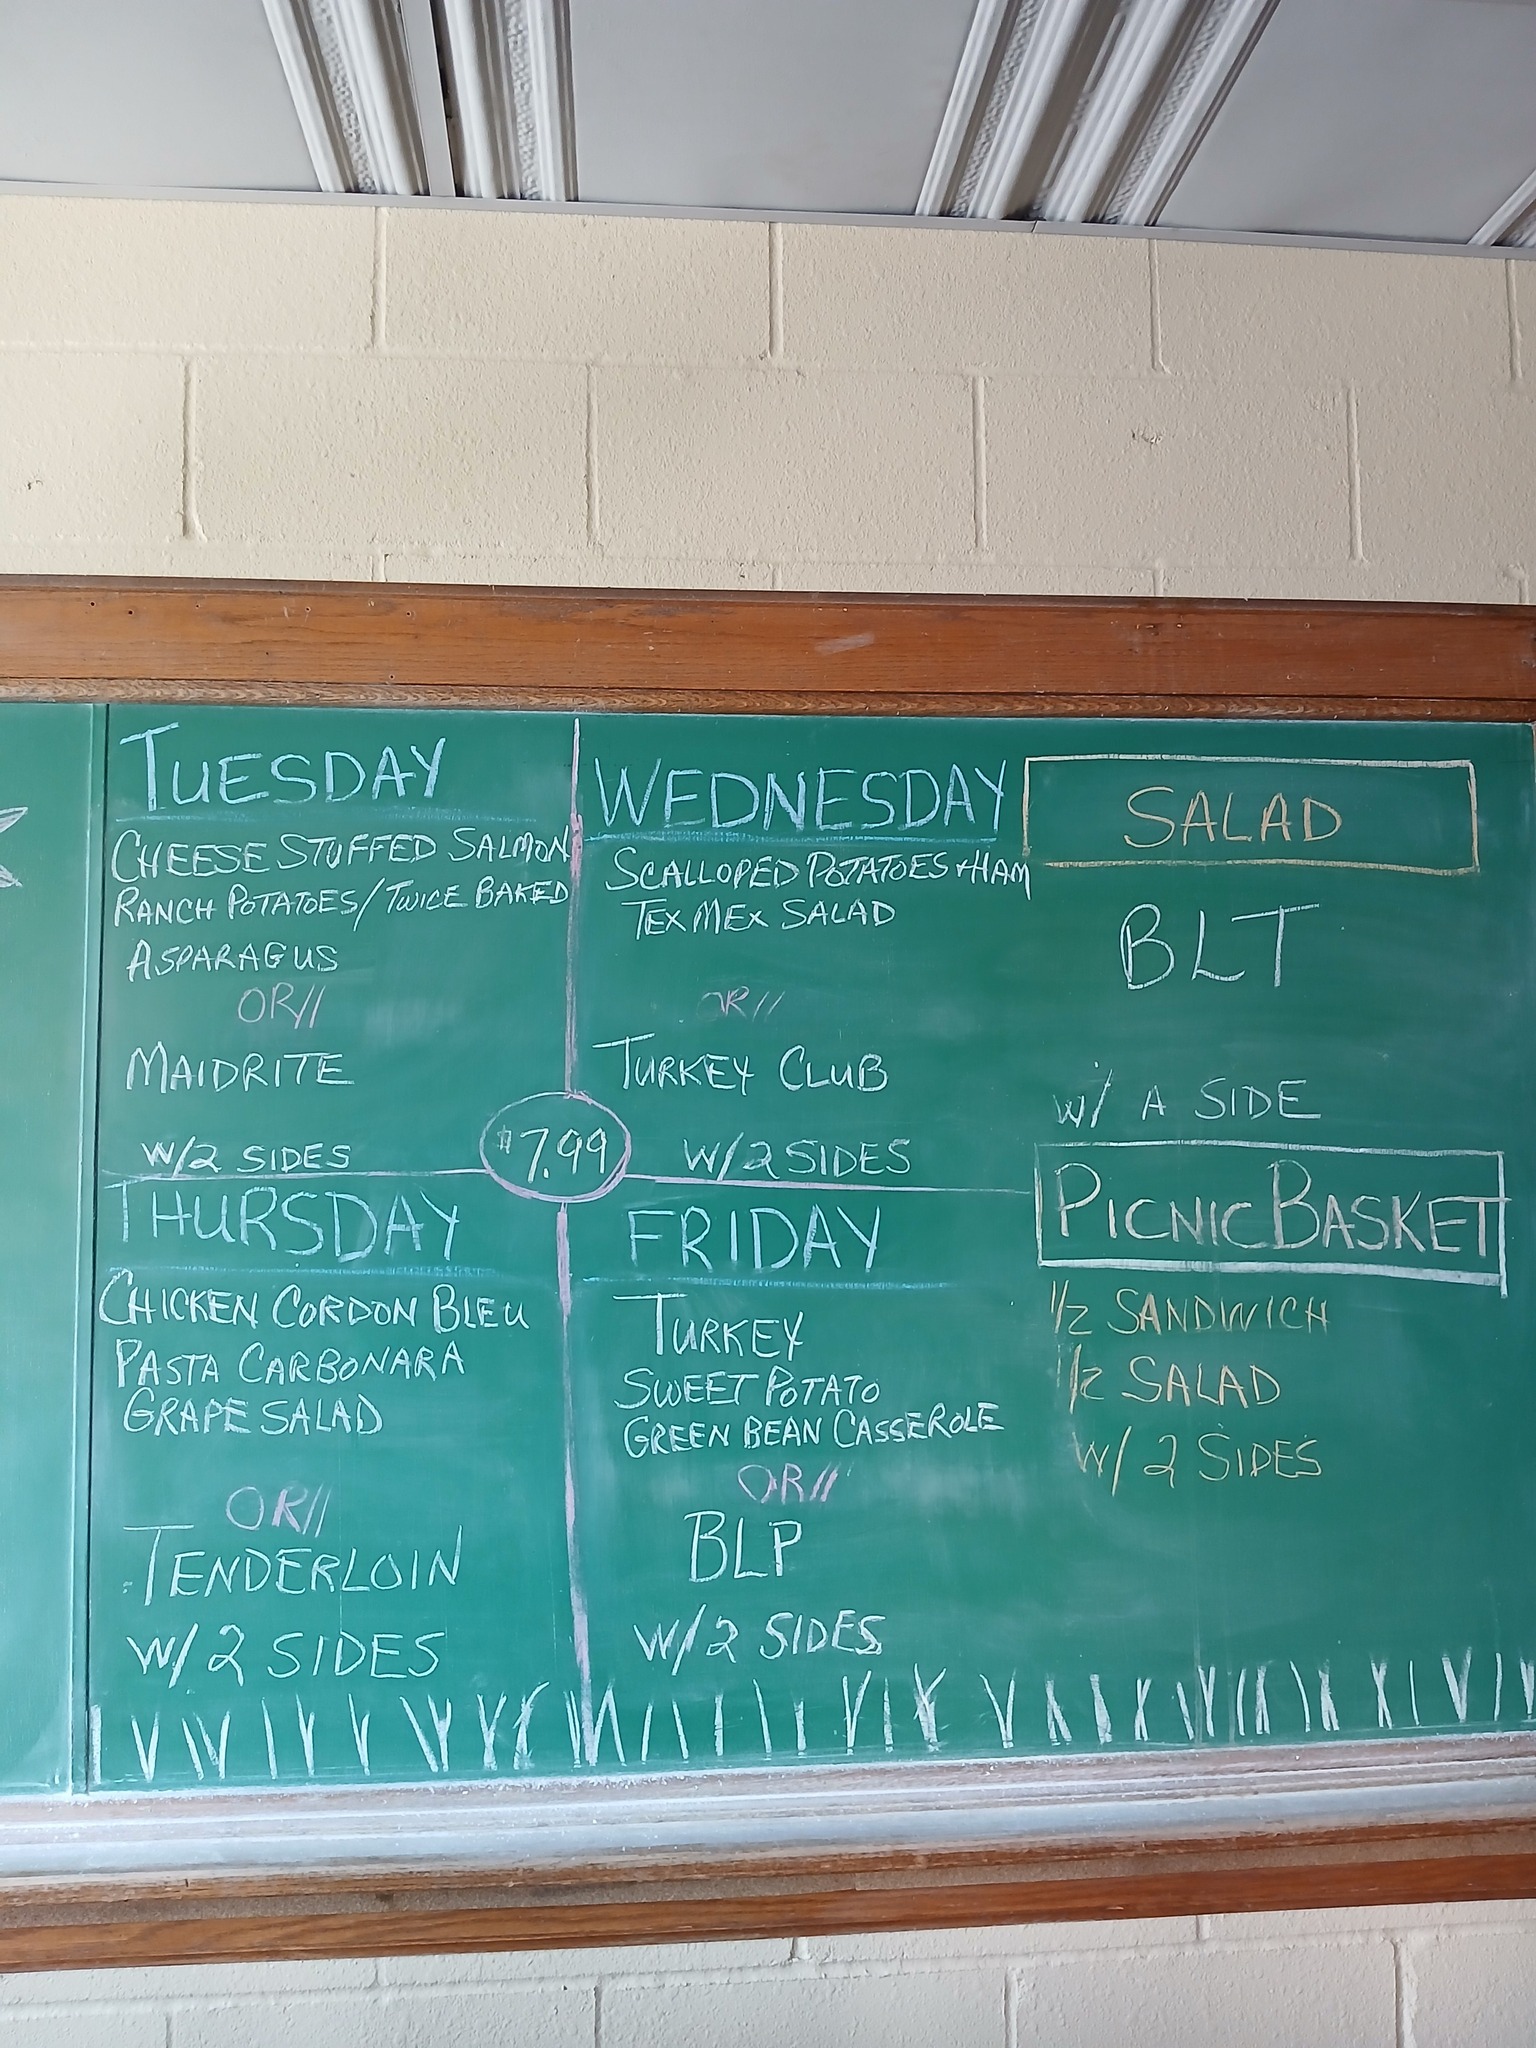 TUESDAY
CHEESE STUFFED SALMON
RANCH POTATOES/TWICE BAKED
ASPARAGUS
OR//
MAIDRITE
W/2 SIDES
WEDNESDAY
SCALLOPED POTATOES + HAM
TEX MEX SALAD
OR//
TURKEY CLUB
W/2 SIDES
$7.99
THURSDAY
CHICKEN CORDON BLEU
PASTA CARBONARA
GRAPE SALAD
OR//
TENDERLOIN
W/2 SIDES
FRIDAY
TURKEY
SWEET POTATO
GREEN BEAN CASSEROLE
OR//
BLP
W/2 SIDES
SALAD
BLT
W/ A SIDE
PICNIC BASKET
1/2 SANDWICH
1/2 SALAD
W/ 2 SIDES